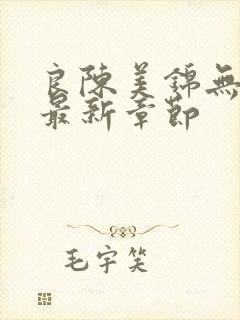 良陳美錦無
最新章節
毛宇笑